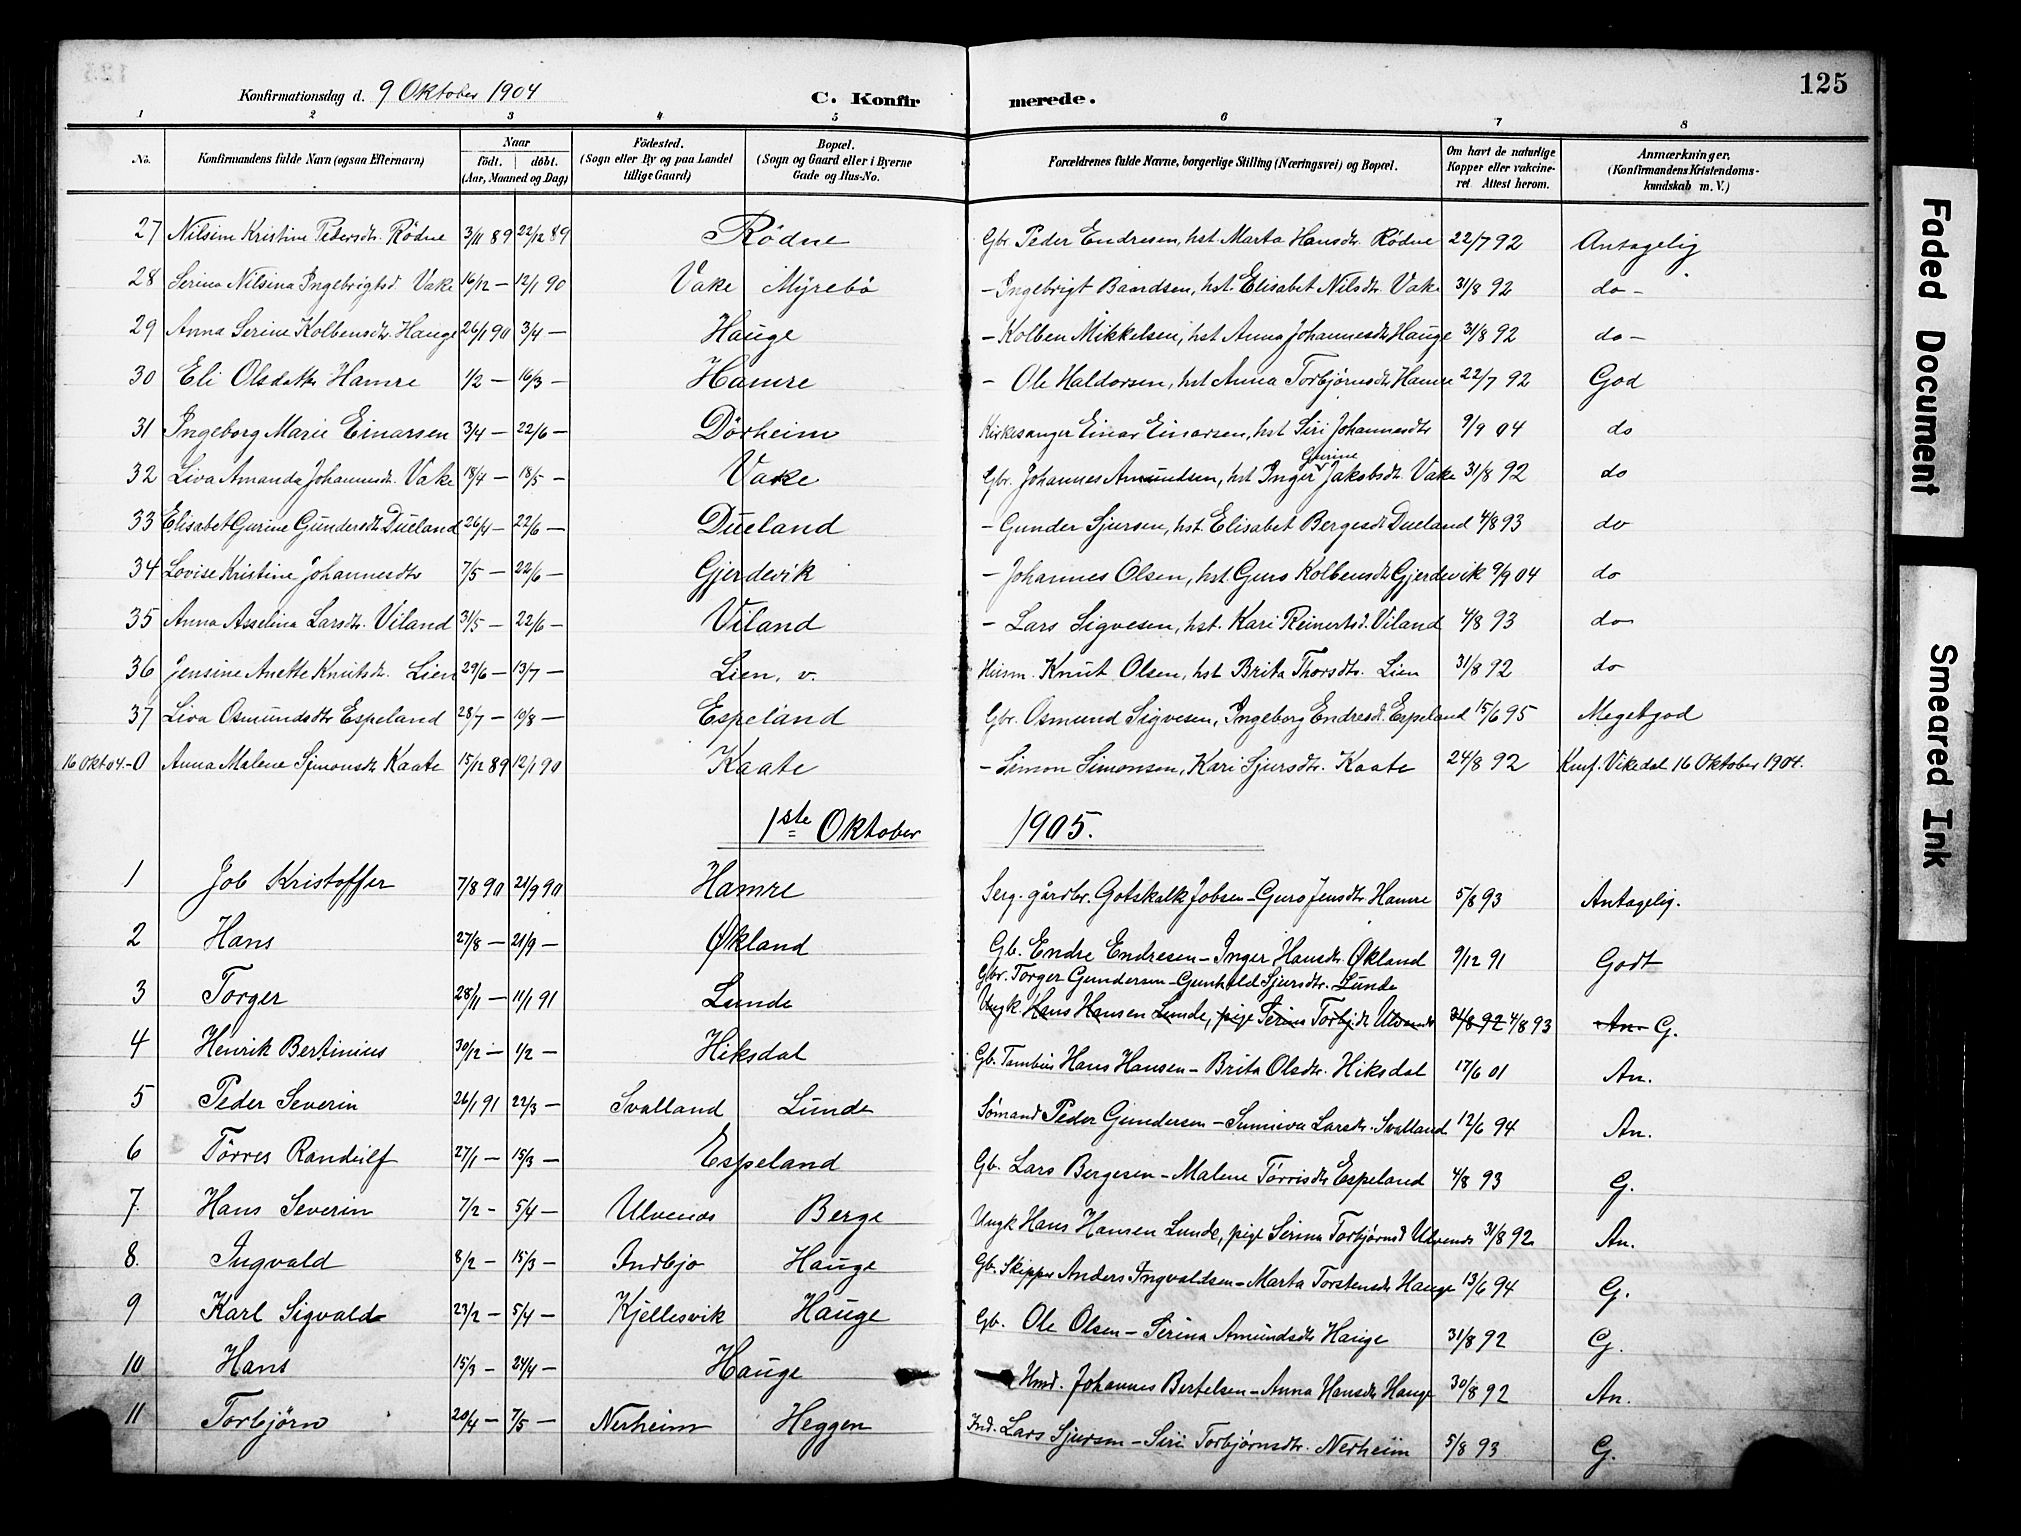 125
Konfirmationsdag d. 9 Oktober 1904 C. Konfirmerede.
1 2 3 4 5 6 7 8
No. Konfirmandens fulde Navn (ogsaa Efternavn) Naar födt. döbt. (Aar, Maaned og Dag) Födested. (Sogn eller By og paa Landet tillige Gaard) Bopæl. (Sogn og Gaard eller i Byerne Gade og Hus-No. Forældrenes fulde Navne, borgerlige Stilling (Næringsvei) og Bopæl. Om havt de naturlige Kopper eller vakcineret. Attest herom. Anmærkninger. (Konfirmandens Kristendomskundskab m. V.)
27 Nilsine Kristine Pedersdtr. Rødne 3/11 89 22/12 89 Rødne Gbr. Peder Endresen, hst. Marta Hansdtr. Rødne 22/7 92 Antagelig
28 Serina Nilsina Ingebrigtsd. Vake 16/12 — 12/1 90 Vake Myrebø — Ingebrigt Baardsen, hst. Elisabet Nilsdtr. Vake 31/8 92 do —
29 Anna Serine Kolbensdtr. Hauge 26/1 90 3/4 — Hauge — Kolben Mikkelsen, hst Anna Johannesdtr Hauge 31/8 92 do —
30 Eli Olsdatter Hamre 1/2 — 16/3 — Hamre — Ole Haldorsen, hst Anna Torbjørnsdtr Hamre 22/7 92 God
31 Ingeborg Marie Einarsen 3/4 — 22/6 — Dørheim Kirkesanger Einar Einarsen, hst Siri Johannesdtr 9/9 04 do
32 Liva Amanda Johannesdtr. Vake 18/4 — 18/5 — Vake Gbr. Johannes Amundsen, hst Inger Gurine Jakobsdtr. Vake 31/8 92 do
33 Elisabet Gurine Gundersdtr. Dueland 26/4 — 22/6 — Dueland — Gunder Sjursen, hst. Elisabet Bergesdtr Dueland 4/8 93 do
34 Lovise Kristine Johannesdtr 7/5 — 22/6 — Gjerdevik — Johannes Olsen, hst. Guro Kolbensdtr Gjerdevik 9/9 04 do
35 Anna Asselina Larsdtr. Viland 31/5 — 22/6 — Viland — Lars Sigvesen, hst. Kari Reinertsd. Viland 4/8 93 do
36 Jensine Anette Knutsdtr. Lien 29/6 — 13/7 — Lien, v. Husm. Knut Olsen, hst Brita Thorsdtr. Lien 31/8 92 do
37 Liva Osmundsdtr Espeland 28/7 — 10/8 — Espeland Gbr. Osmund Sigvesen, Ingeborg Endresd. Espeland 15/6 95 Megetgod
16 Okt 04. — 0 Anna Malene Simonsdtr Kaate 15/12 89 12/1 90 Kaate — Simon Simonsen, Kari Sjursdtr. Kaate 24/8 92 Konf. Vikedal 16 Oktober 1904.
1ste Oktober 1905.
1 Job Kristoffer 7/8 90 21/9 90 Hamre Serg. gårdbr. Gotskalk Jobsen — Guro Jensdtr Hamre 5/8 93 Antagelig.
2 Hans 27/8 — 21/9 — Økland Gb. Endre Endresen — Inger Hansdtr. Økland 9/12 91 Godt
3 Torger 28/11 — 11/1 91 Lunde Gbr. Torger Gundersen — Gunhild Sjursdtr. Lunde
Ungk. Hans Hansen Lunde, pige Serina Torbj.dtr Ulvenes 31/8 92 4/8 93 An. G.
4 Henrik Bertinius 30/12 — 1/2 — Hiksdal Gb. Tambur Hans Hansen — Brita Olsdtr. Hiksdal 17/6 01 An.
5 Peder Severin 26/1 91 22/3 — Svalland Lunde Sømand Peder Gundersen — Sunniva Larsdtr. Svalland 12/6 94 An.
6 Tørres Randulf 27/1 — 15/3 — Espeland Gb. Lars Bergesen — Malene Tørrisdtr Espeland 4/8 93 G.
7. Hans Severin 7/2 — 5/4 — Ulvenes Berge Ungk Hans Hansen Lunde, pige Serina Torbjørnsd Ulvenes 31/8 92 An.
8. Ingvald 8/2 — 15/3 — Indbjo Hauge Gb. Skipper Anders Ingvaldsen — Marta Torstensdtr Hauge 13/6 94 G.
9 Karl Sigvald 23/2 — 5/4 — Kjellesvik Hauge Gb. Ole Olsen — Serina Amundsdtr Hauge 31/8 92 G.
10 Hans 15/3 — 24/4 — Hauge Hmd. Johannes Bertelsen — Anna Hansdtr Hauge 30/8 92 An.
11 Torbjörn 20/4 — 7/5 — Nerheim Heggen Ind. Lars Sjursen — Siri Torbjørnsdtr. Nerheim 5/8 93 G.
Faded Document
Smeared Ink